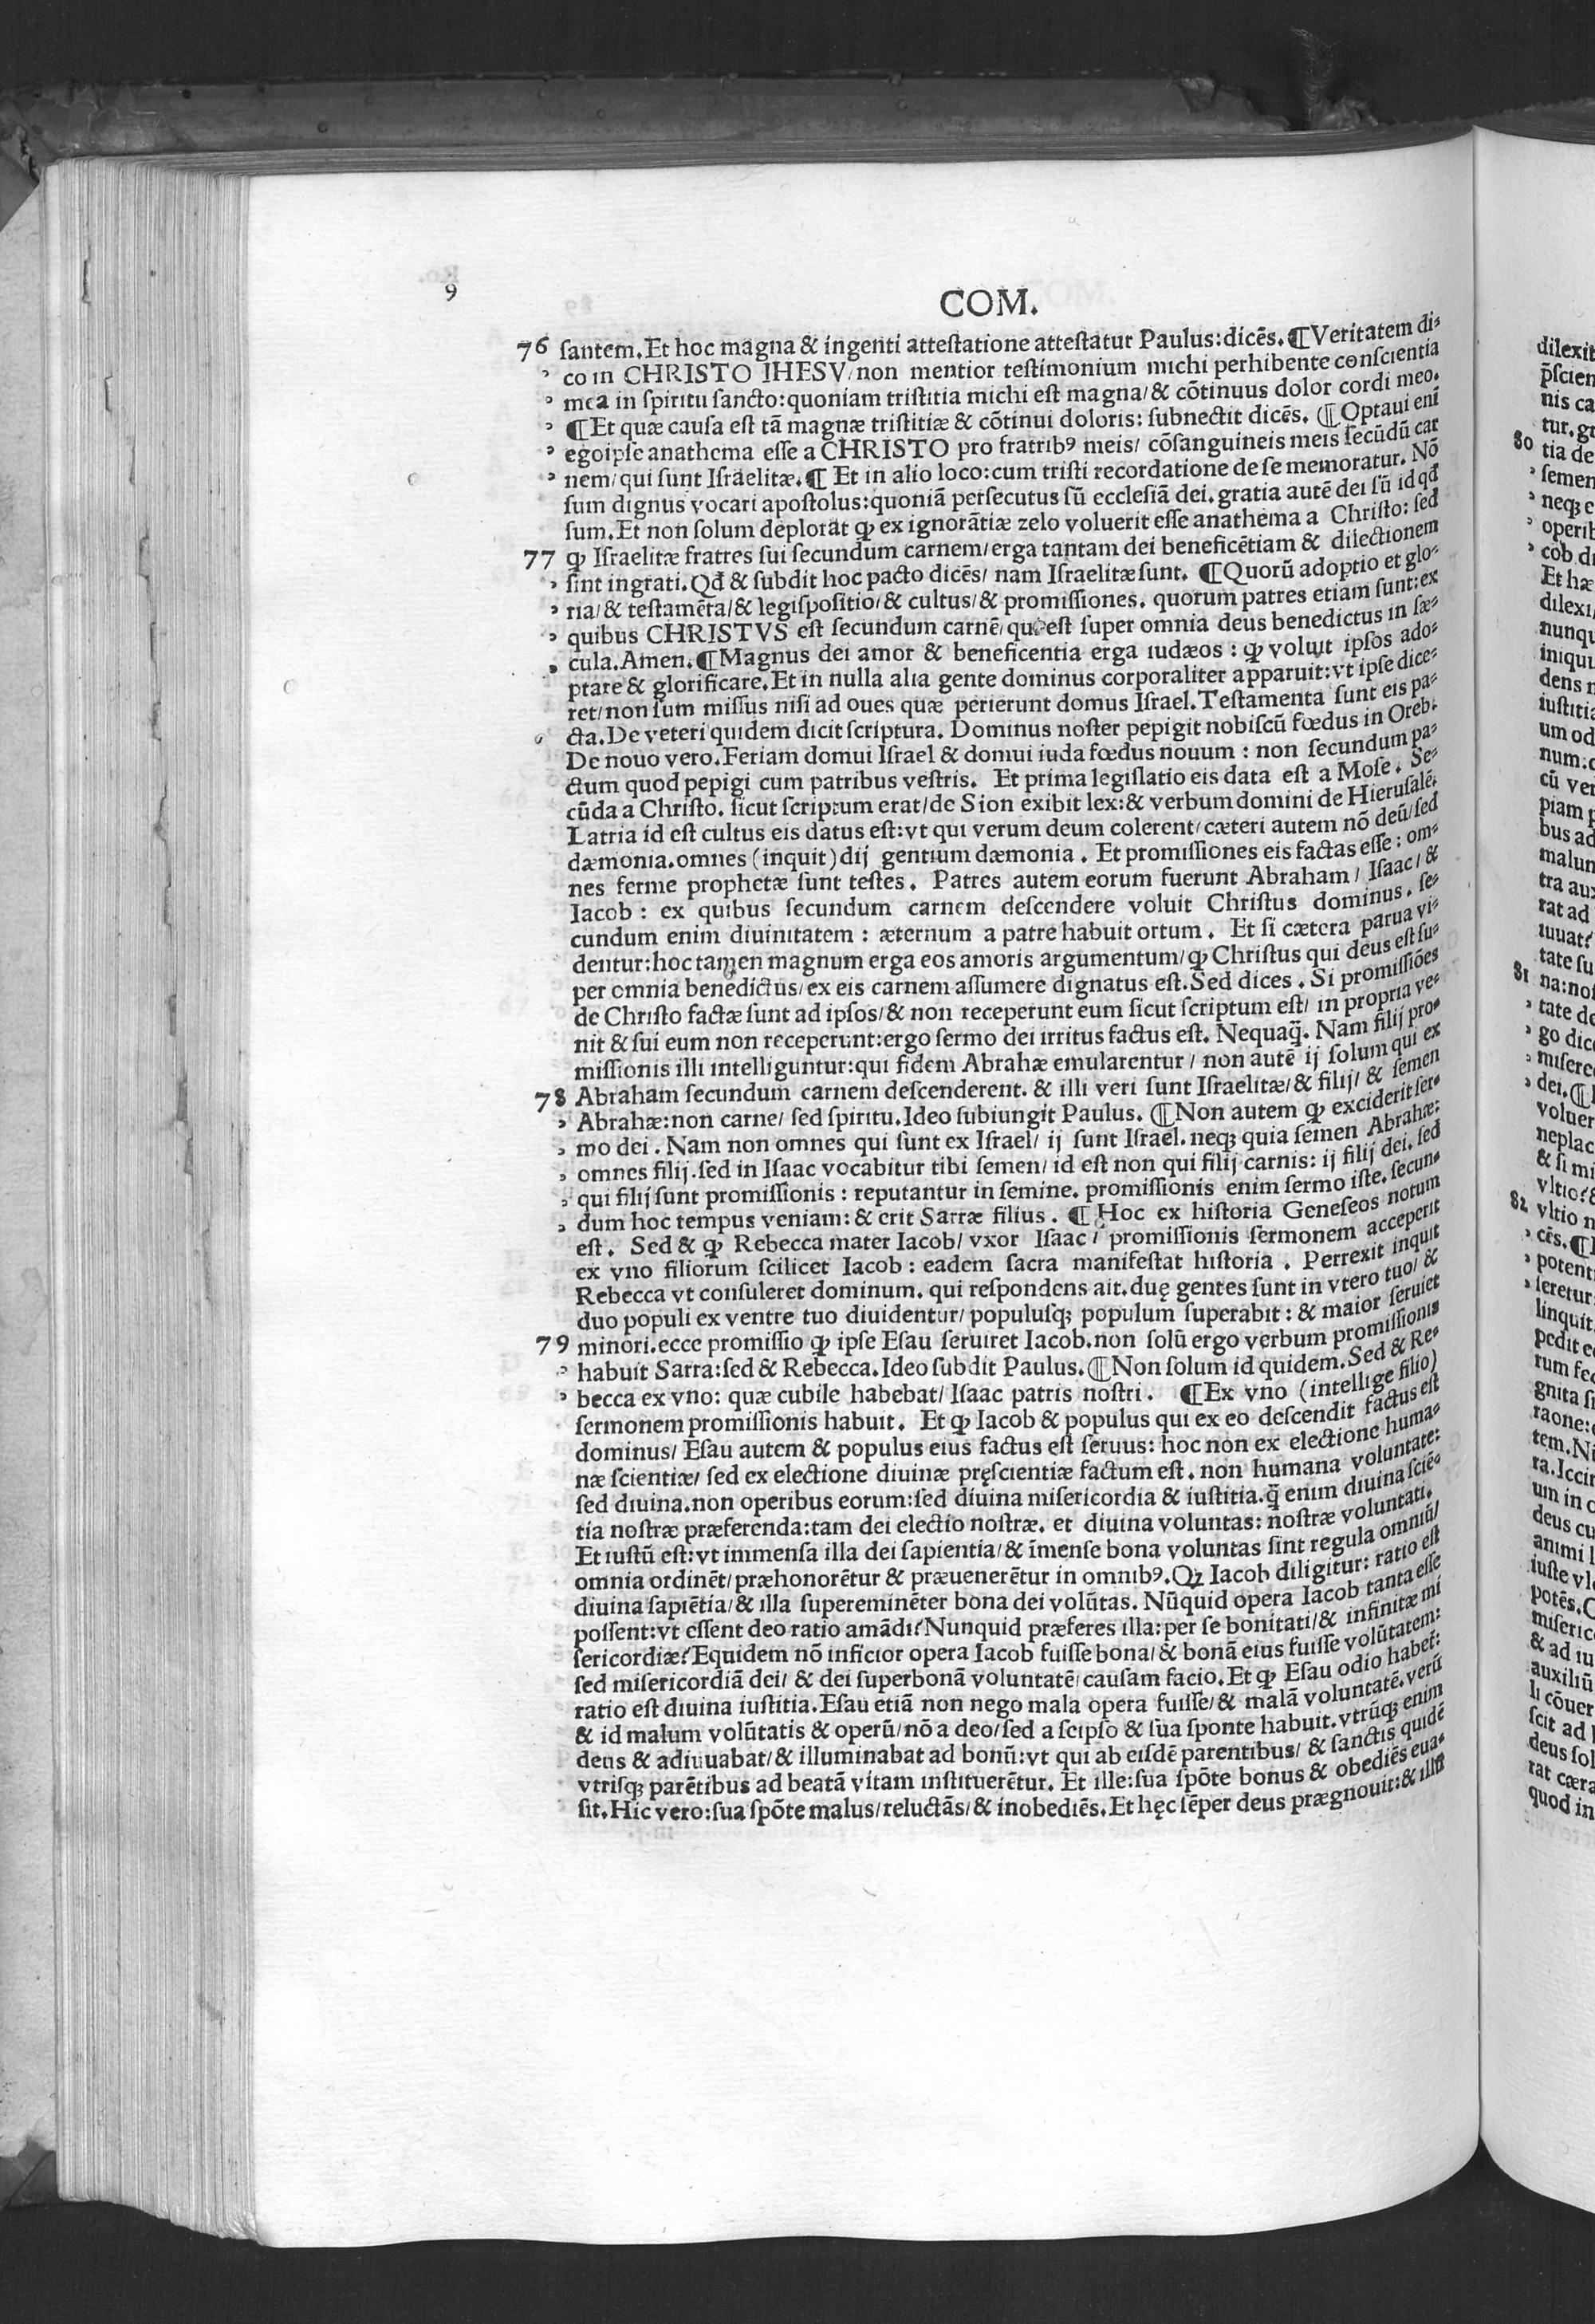 9
COM.
76 ſantem.Et hoc magna & ingenti atteſtatione atteſtatur Paulus:dicẽs.¶Veritatem di⸗
co in CHRISTO IHESV/non mentior teſtimonium michi perhibente conſcientia
mea in ſpiritu ſancto:quoniam triſtitia michi eſt magna/& cõtinuus dolor cordi meo.
¶Et quæ cauſa eſt tã magnæ triſtitiæ & cõtinui doloris: ſubnectit dicẽs. ¶Optaui enĩ
egoipſe anathema eſſe a CHRISTO pro fratribꝰ meis/ cõſanguineis meis ſecũdũ car
nem/qui ſunt Iſraelitæ.¶ Et in alio loco:cum triſti recordatione de ſe memoratur. Nõ
ſum dignus vocari apoſtolus:quoniã perſecutus sũ eccleſiã dei.gratia autẽ dei sũ id qđ
ſum.Et non ſolum deplorat ꝙ ex ignorãtiæ zelo voluerit eſſe anathema a Chriſto: ſed
77 ꝙ Iſraelitæ fratres ſui ſecundum carnem/erga tantam dei beneficẽtiam & dilectionem
ſint ingrati.Qđ & ſubdit hoc pacto dicẽs/ nam Iſraelitæ ſunt. ¶Quorũ adoptio et glo⸗
ria/& teſtamẽta/& legiſpoſitio/& cultus/& promiſſiones. quorum patres etiam ſunt:ex
quibus CHRISTVS eſt ſecundum carnẽ/qui eſt ſuper omnia deus benedictus in ſæ⸗
cula.Amen.¶Magnus dei amor & beneficentia erga iudæos : ꝙ voluit ipſos ado⸗
ptare & glorificare.Et in nulla alia gente dominus corporaliter apparuit:vt ipſe dice⸗
ret/non ſum miſſus niſi ad oues quæ perierunt domus Iſrael.Teſtamenta ſunt eis pa⸗
cta.De veteri quidem dicit ſcriptura. Dominus noſter pepigit nobiſcũ fœdus in Oreb.
De nouo vero.Feriam domui Iſrael & domui iuda fœdus nouum : non ſecundum pa⸗
ctum quod pepigi cum patribus veſtris. Et prima legiſlatio eis data eſt a Moſe. Se⸗
cũda a Chriſto. ſicut ſcriptum erat/de Sion exibit lex:& verbum domini de Hieruſalẽ.
Latria id eſt cultus eis datus eſt:vt qui verum deum colerent/cæteri autem nõ deũ/ſed
dæmonia.omnes (inquit)dij gentium dæmonia . Et promiſſiones eis factas eſſe : om⸗
nes ferme prophetæ ſunt teſtes. Patres autem eorum fuerunt Abraham/ Iſaac/ &
Iacob : ex quibus ſecundum carnem deſcendere voluit Chriſtus dominus. ſe⸗
cundum enim diuinitatem : æternum a patre habuit ortum. Et ſi cætera parua vi⸗
dentur:hoc tamen magnum erga eos amoris argumentum/ꝙ Chriſtus qui deus eſt ſu⸗
per omnia benedictus/ex eis carnem aſſumere dignatus eſt.Sed dices . Si promiſſiões
de Chriſto factæ ſunt ad ipſos/& non receperunt eum ſicut ſcriptum eſt/ in propria ve⸗
nit & ſui eum non receperunt:ergo ſermo dei irritus factus eſt. Nequaq̃. Nam filij pro⸗
miſſionis illi intelliguntur:qui fidem Abrahæ emularentur / non autẽ ij ſolum qui ex
78 Abraham ſecundum carnem deſcenderent. & illi veri ſunt Iſraelitæ/& filij/ & ſemen
Abrahæ:non carne/ ſed ſpiritu.Ideo ſubiungit Paulus. ¶Non autem ꝙ exciderit ſer⸗
mo dei . Nam non omnes qui ſunt ex Iſrael/ ij ſunt Iſrael.neqꝫ quia ſemen Abrahæ:
omnes filij.ſed in Iſaac vocabitur tibi ſemen/ id eſt non qui filij carnis: ij filij dei. ſed
qui filij ſunt promiſſionis : reputantur in ſemine. promiſſionis enim ſermo iſte. ſecun⸗
dum hoc tempus veniam:& erit Sarræ filius . ¶ Hoc ex hiſtoria Geneſeos notum
eſt. Sed & ꝙ Rebecca mater Iacob/ vxor Iſaac / promiſſionis ſermonem acceperit
ex vno filiorum ſcilicet Iacob : eadem ſacra manifeſtat hiſtoria . Perrexit inquit
Rebecca vt conſuleret dominum. qui reſpondens ait.duę gentes ſunt in vtero tuo/ &
duo populi ex ventre tuo diuidentur/ populuſqꝫ populum ſuperabit : & maior ſeruiet
79 minori.ecce promiſſio ꝙ ipſe Eſau ſeruiret Iacob.non ſolũ ergo verbum promiſſionis
habuit Sarra:ſed & Rebecca.Ideo ſubdit Paulus.¶Non ſolum id quidem.Sed & Re⸗
becca ex vno: quæ cubile habebat/ Iſaac patris noſtri . ¶Ex vno (intellige filio)
ſermonem promiſſionis habuit. Et ꝙ Iacob & populus qui ex eo deſcendit factus eſt
dominus/ Eſau autem & populus eius factus eſt ſeruus: hoc non ex electione huma⸗
næ ſcientiæ/ ſed ex electione diuinæ pręſcientiæ factum eſt. non humana voluntate:
ſed diuina.non operibus eorum:ſed diuina miſericordia & iuſtitia.q̃ enim diuina ſciẽ⸗
tia noſtræ præferenda:tam dei electio noſtræ. et diuina voluntas: noſtræ voluntati.
Et iuſtũ eſt:vt immenſa illa dei ſapientia/& ĩmenſe bona voluntas ſint regula omniũ/
omnia ordinẽt/præhonorẽtur & præuenerẽtur in omnibꝰ.Qꝫ Iacob diligitur: ratio eſt
diuina ſapiẽtia/& illa ſupereminẽter bona dei volũtas. Nũquid opera Iacob tanta eſſe
poſſent:vt eſſent deo ratio amãdi?Nunquid præferes illa:per ſe bonitati/& infinitæ mi
ſericordiæ?Equidem nõ inficior opera Iacob fuiſſe bona/& bonã eius fuiſſe volũtatem:
ſed miſericordiã dei/ & dei ſuperbonã voluntatẽ/cauſam facio.Et ꝙ Eſau odio habet̃:
ratio eſt diuina iuſtitia.Eſau etiã non nego mala opera fuiſſe/& malã voluntatẽ.verũ
& id malum volũtatis & operũ/nõ a deo/ſed a ſeipſo & ſua ſponte habuit.vtrũqꝫ enim
deus & adiuuabat/& illuminabat ad bonũ:vt qui ab eiſdẽ parentibus/ & ſanctis quidẽ
vtriſqꝫ parẽtibus ad beatã vitam inſtituerẽtur. Et ille:ſua ſpõte bonus & obediẽs eua⸗
ſit.Hic vero:ſua ſpõte malus/reluctãs/& inobediẽs.Et hęc ſẽper deus prægnouit:& illũ